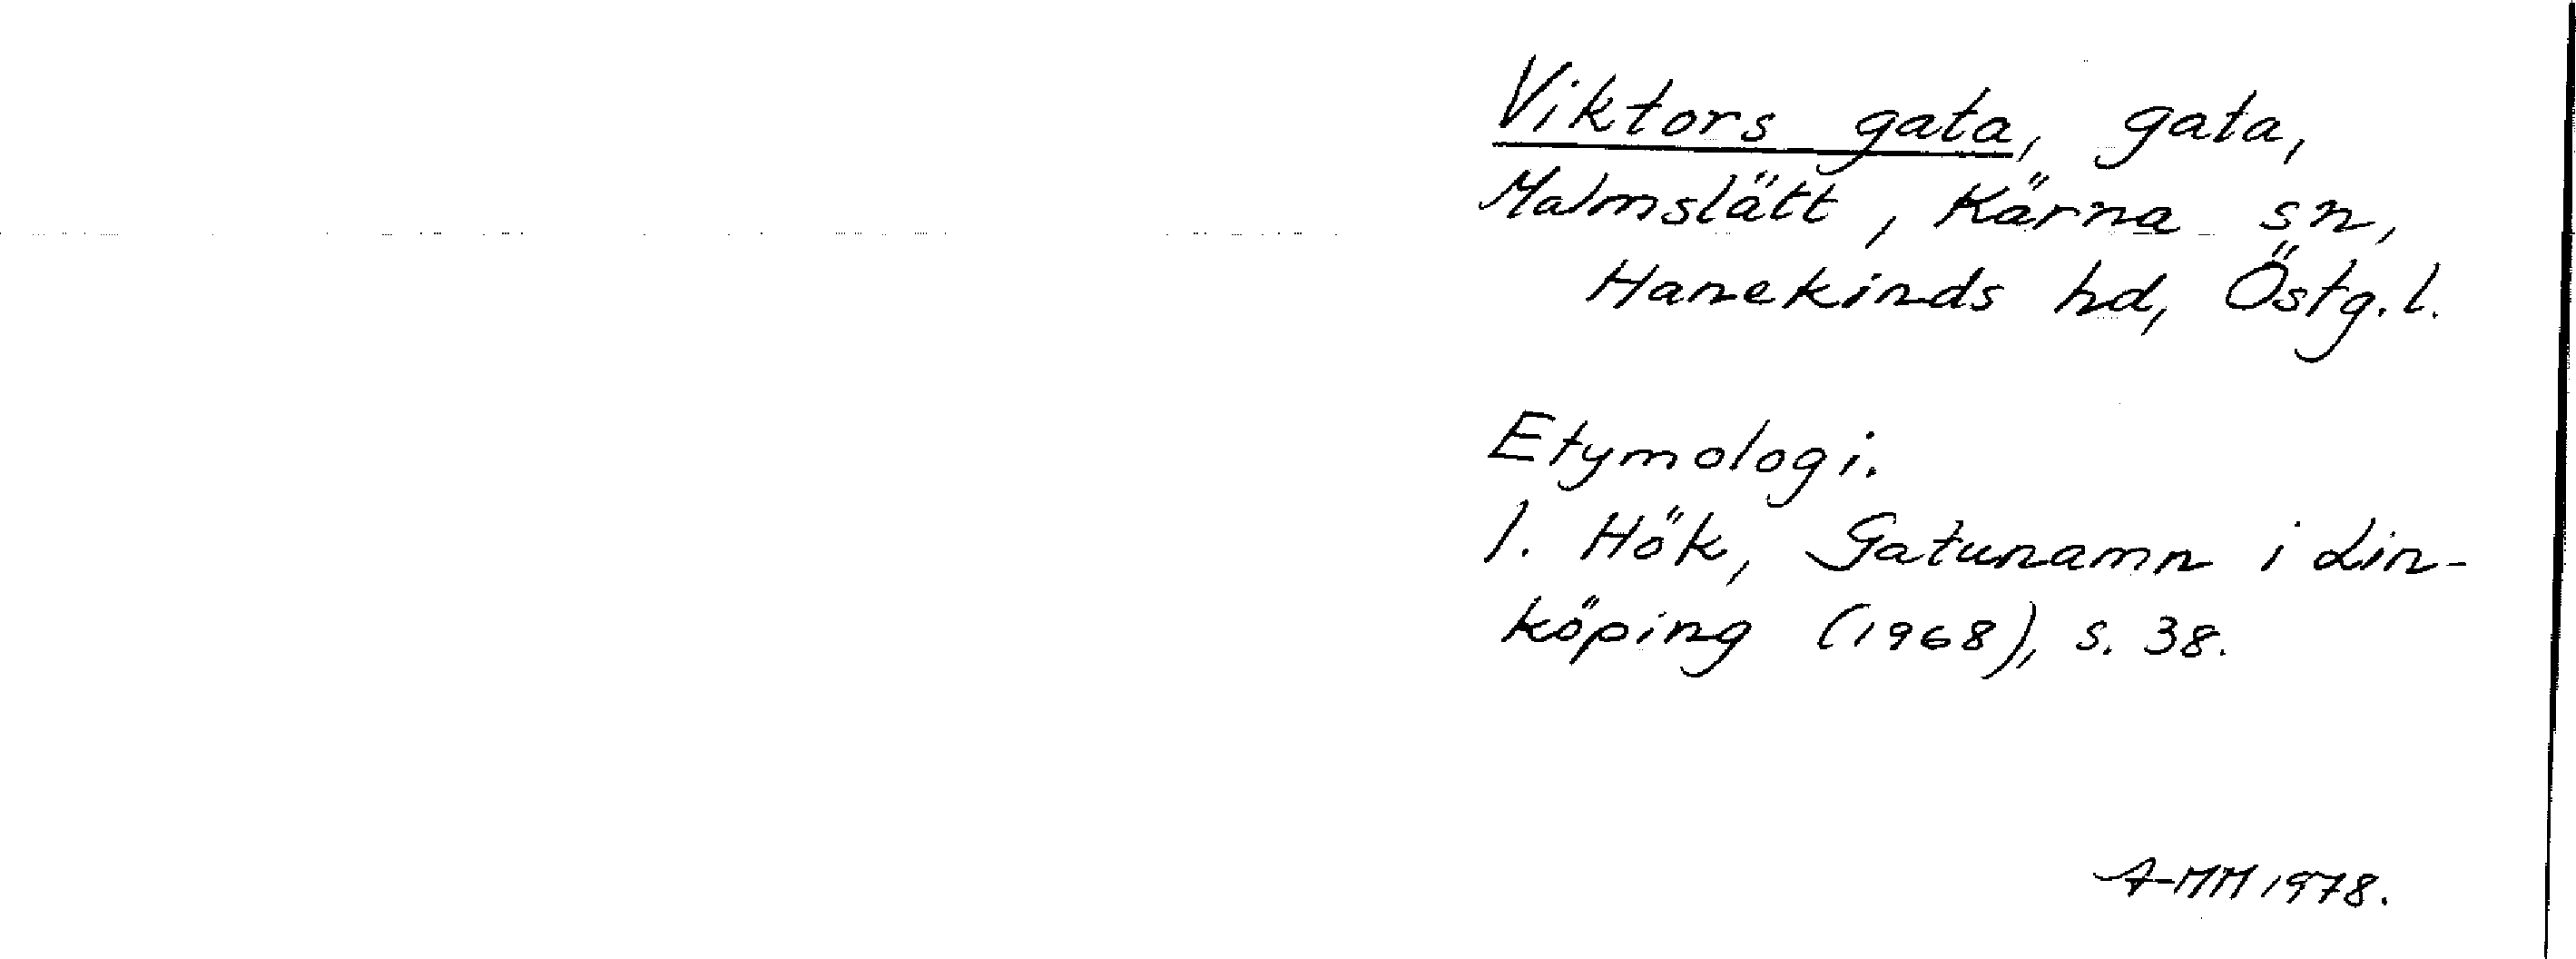 Viktors gata, gata,
Malmslätt, Kärna sn,
Hanekinds hd, Östg.l.
Etymologi.
I. Hök, Gatunamn i Lin-
köping (1968), s. 38.
A-MM 1978.